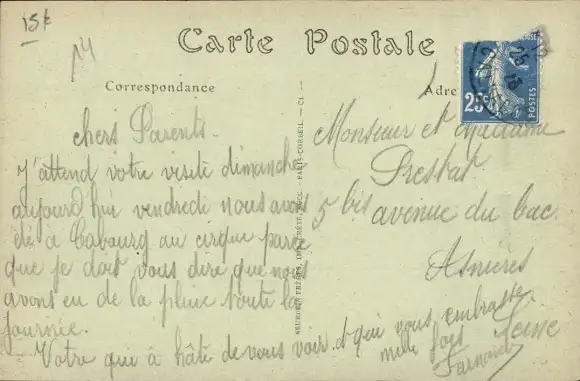 15k
14
Carte Postale
Correspondance
Adre
25c
POSTES
chers Parents.
J'attend votre visite dimanche
aujourd hui vendredi nous avons
été à Cabourg au cirque parce
que je doit vous dire que nous
avont eu de la pluie toute la
journée.
Votre que à hâte de vous voir et qui vous embrasse
mille fois
Fernand
NEURDEIN FRÈRES
PARIS-CORBEIL
Monsieur et Madame
Prestat
5 bis avenue du bac
Asnières
Seine